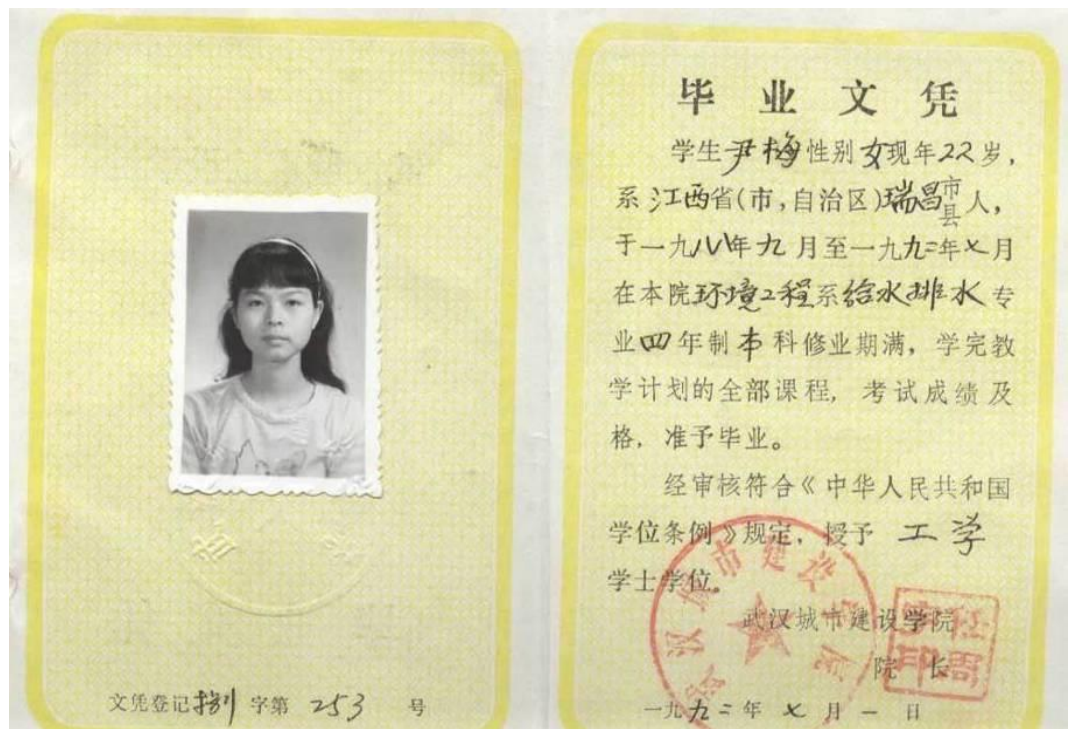 文凭登记 字第 253 号
毕业文凭
学生尹梅性别女现年22岁，
系江西省(市,自治区)瑞昌市县人，
于一九八八年九月至一九九二年七月
在本院环境工程系给水排水专
业四年制本科修业期满，学完教
学计划的全部课程，考试成绩及
格，准予毕业。
经审核符合《中华人民共和国
学位条例》规定，授予 工学
学士学位。
武汉城市建设学院
院 长
一九九二年七月一日
武汉城市建设学院